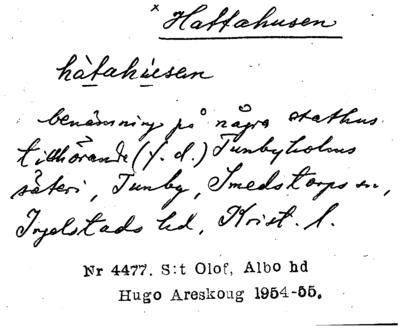 x Hattahusen
hàtahúsen
benämning på några stathus
tillhörande (f.d.) Tunbyholms
säteri, Tunby, Smedstorps sn,
Ingelstads hd, Krist. l.
Nr 4477. S:t Olof, Albo hd
Hugo Areskoug 1954-55.